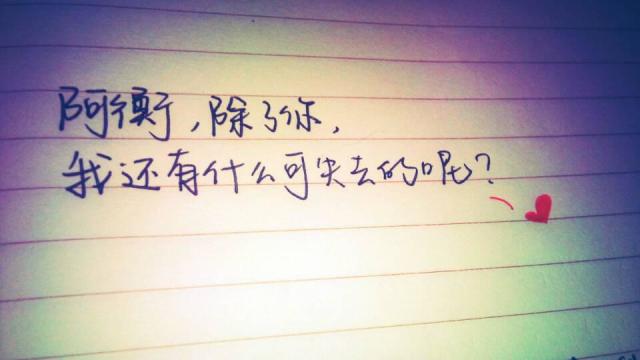 阿衡，除了你，
我还有什么可失去的呢？